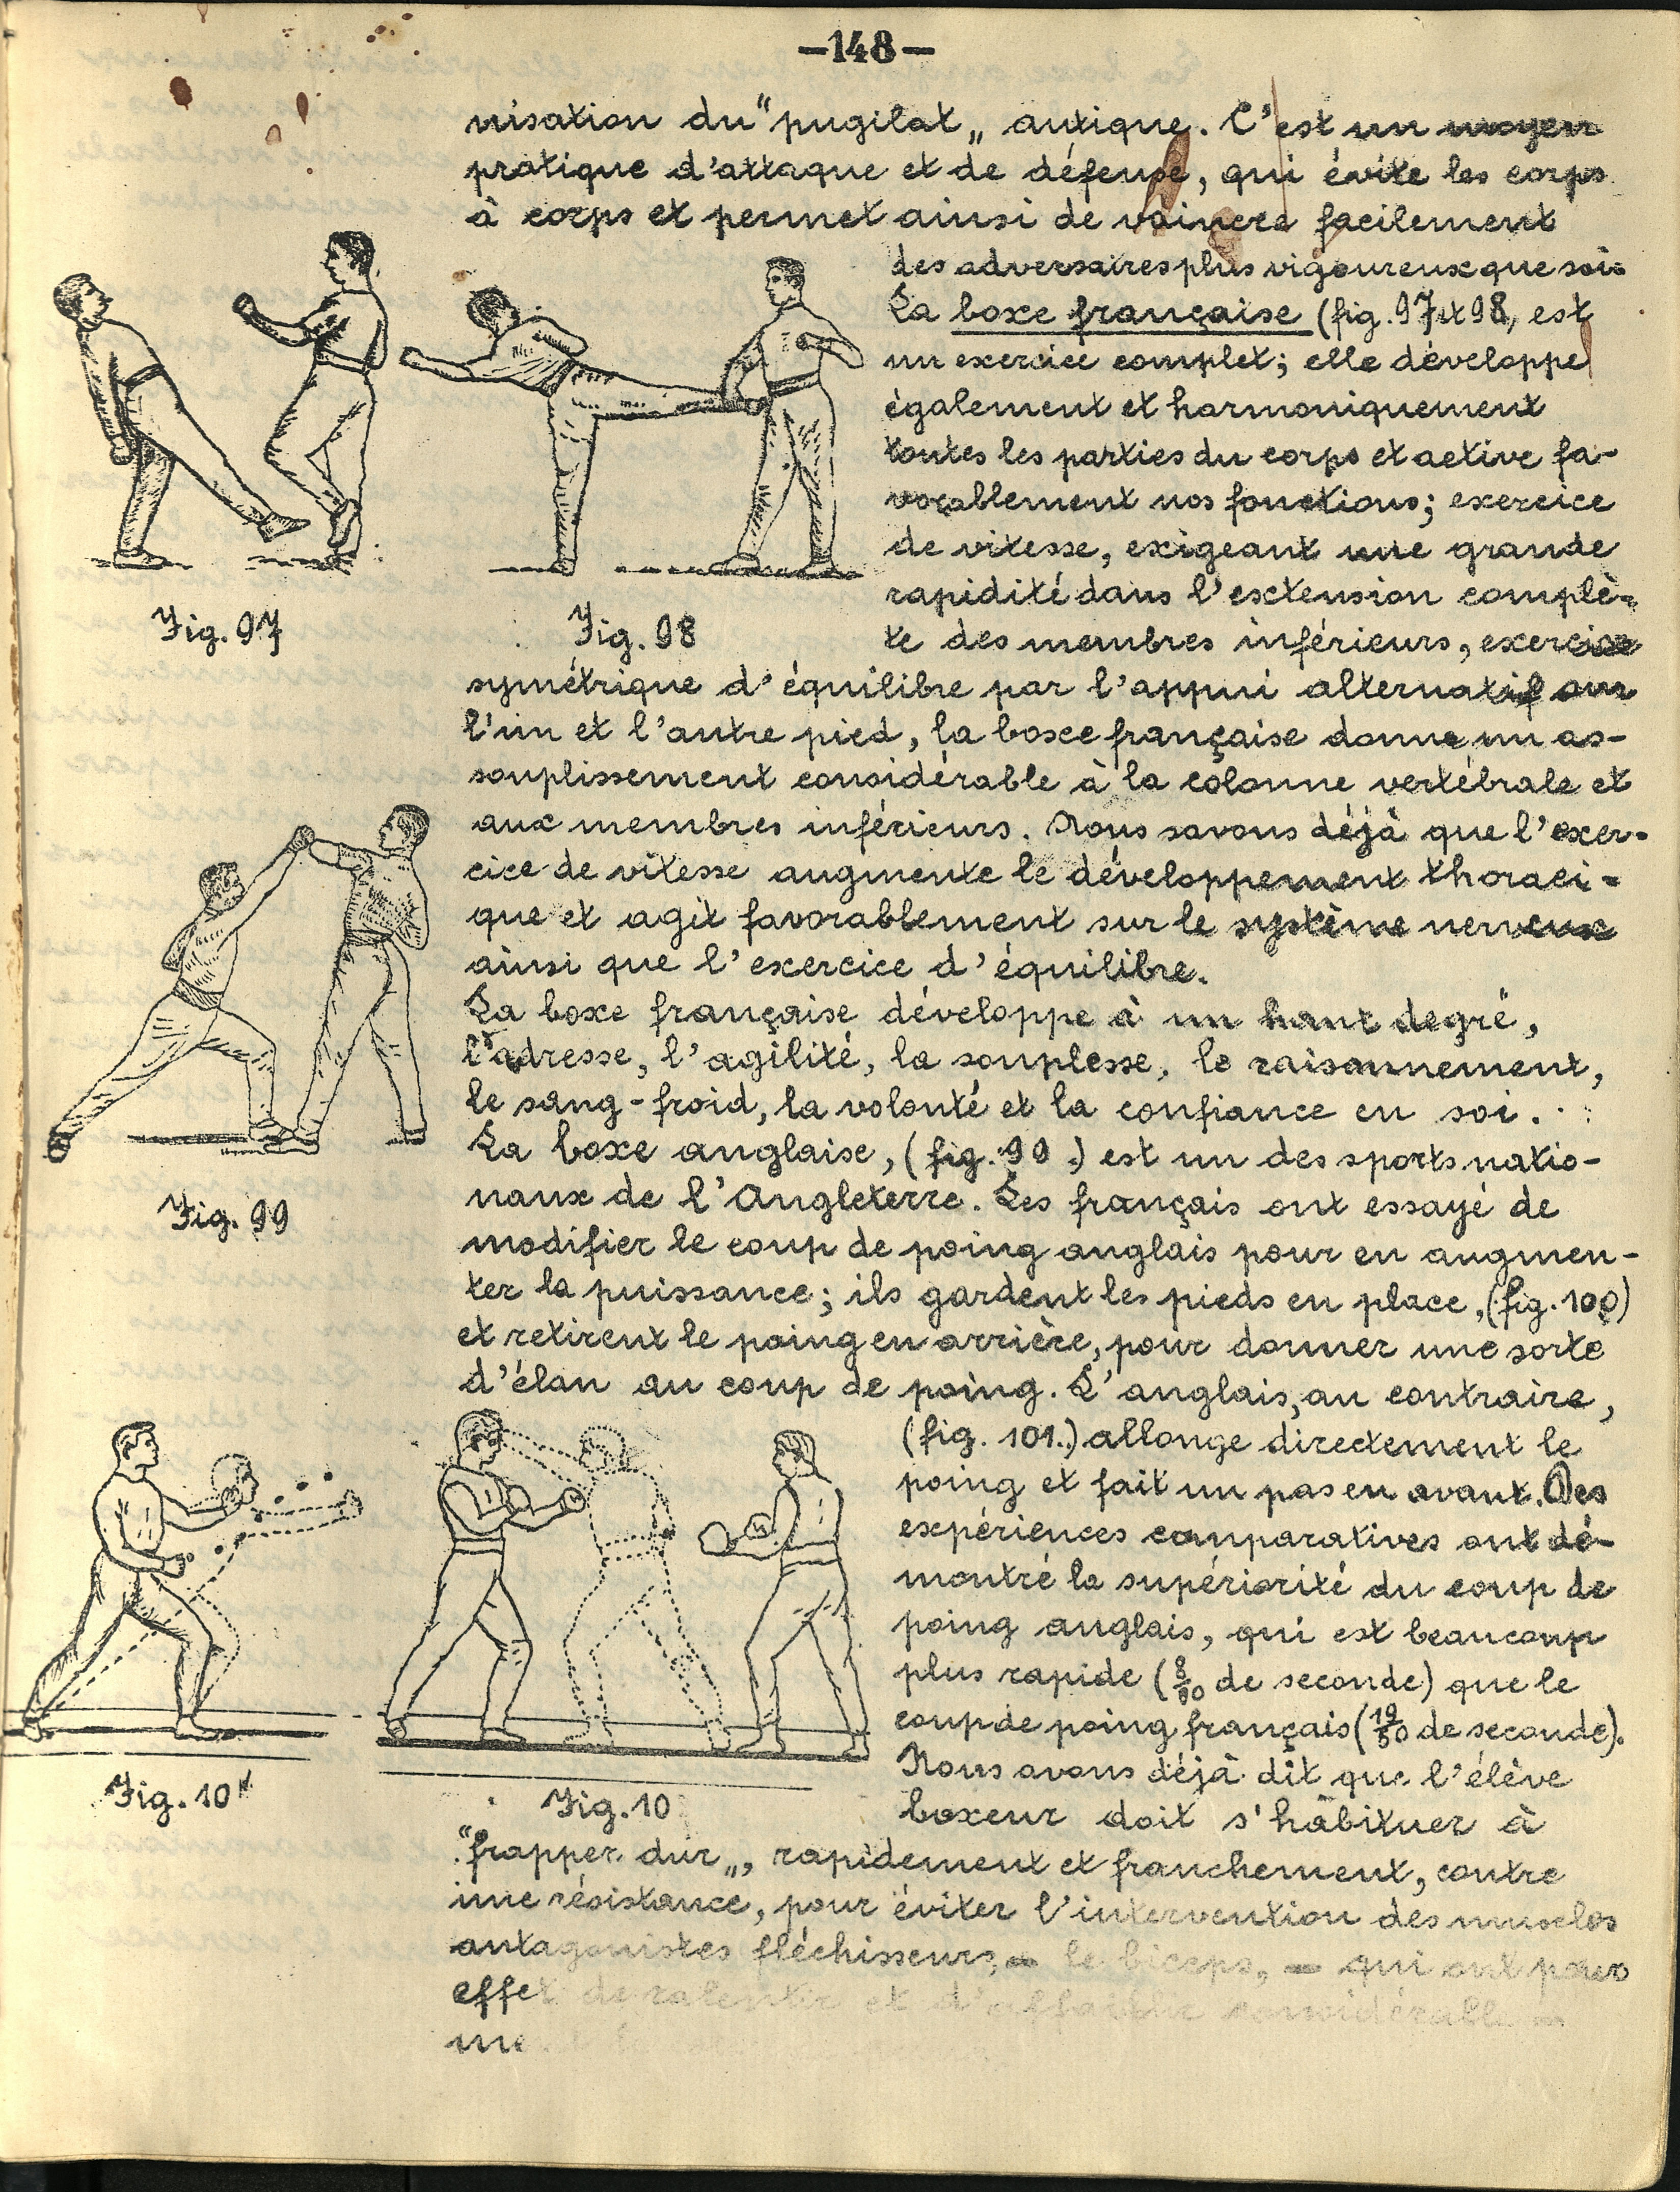 —148—
nisation du "pugilat„ antique. C'est un moyen
pratique d'attaque et de défense, qui évite les corps
à corps et permet ainsi de vaincre facilement
des adversaires plus vigoureux que soi.
La boxe française (fig. 97 et 98, est
un exercice complet; elle développe
également et harmoniquement
toutes les parties du corps et active fa-
vorablement nos fonctions; exercice
de vitesse, exigeant une grande
rapidité dans l'extension complè-
te des membres inférieurs, exercice
Fig. 97
Fig. 98
symétrique d'équilibre par l'appui alternatif sur
l'un et l'autre pied, la boxe française donne un as-
souplissement considérable à la colonne vertébrale et
aux membres inférieurs. Nous savons déjà que l'exer-
cice de vitesse augmente le développement thoraci-
que et agit favorablement sur le système nerveux
ainsi que l'exercice d'équilibre.
La boxe française développe à un haut degré,
l'adresse, l'agilité, la souplesse, le raisonnement,
le sang-froid, la volonté et la confiance en soi.
La boxe anglaise, (fig. 99.) est un des sports natio-
naux de l'Angleterre. Les français ont essayé de
Fig. 99
modifier le coup de poing anglais pour en augmen-
ter la puissance; ils gardent les pieds en place, (fig. 100)
et retirent le poing en arrière, pour donner une sorte
d'élan au coup de poing. L'anglais, au contraire,
(fig. 101.) allonge directement le
poing et fait un pas en avant. Des
expériences comparatives ont dé-
montré la supériorité du coup de
poing anglais, qui est beaucoup
plus rapide (8/00 de seconde) que le
coup de poing français (19/50 de seconde).
Nous avons déjà dit que l'élève
boxeur doit s'hâbituer à
Fig. 10
Fig. 10
"frapper dur„, rapidement et franchement, contre
une résistance, pour éviter l'intervention des muscles
antagonistes fléchisseurs, - le biceps, - qui ont pour
effet de ralentir et d'affaiblir considérable-
me